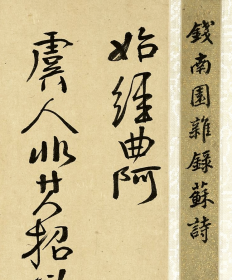 錢南園雜録蘇詩
始經曲阿
虞人非其招